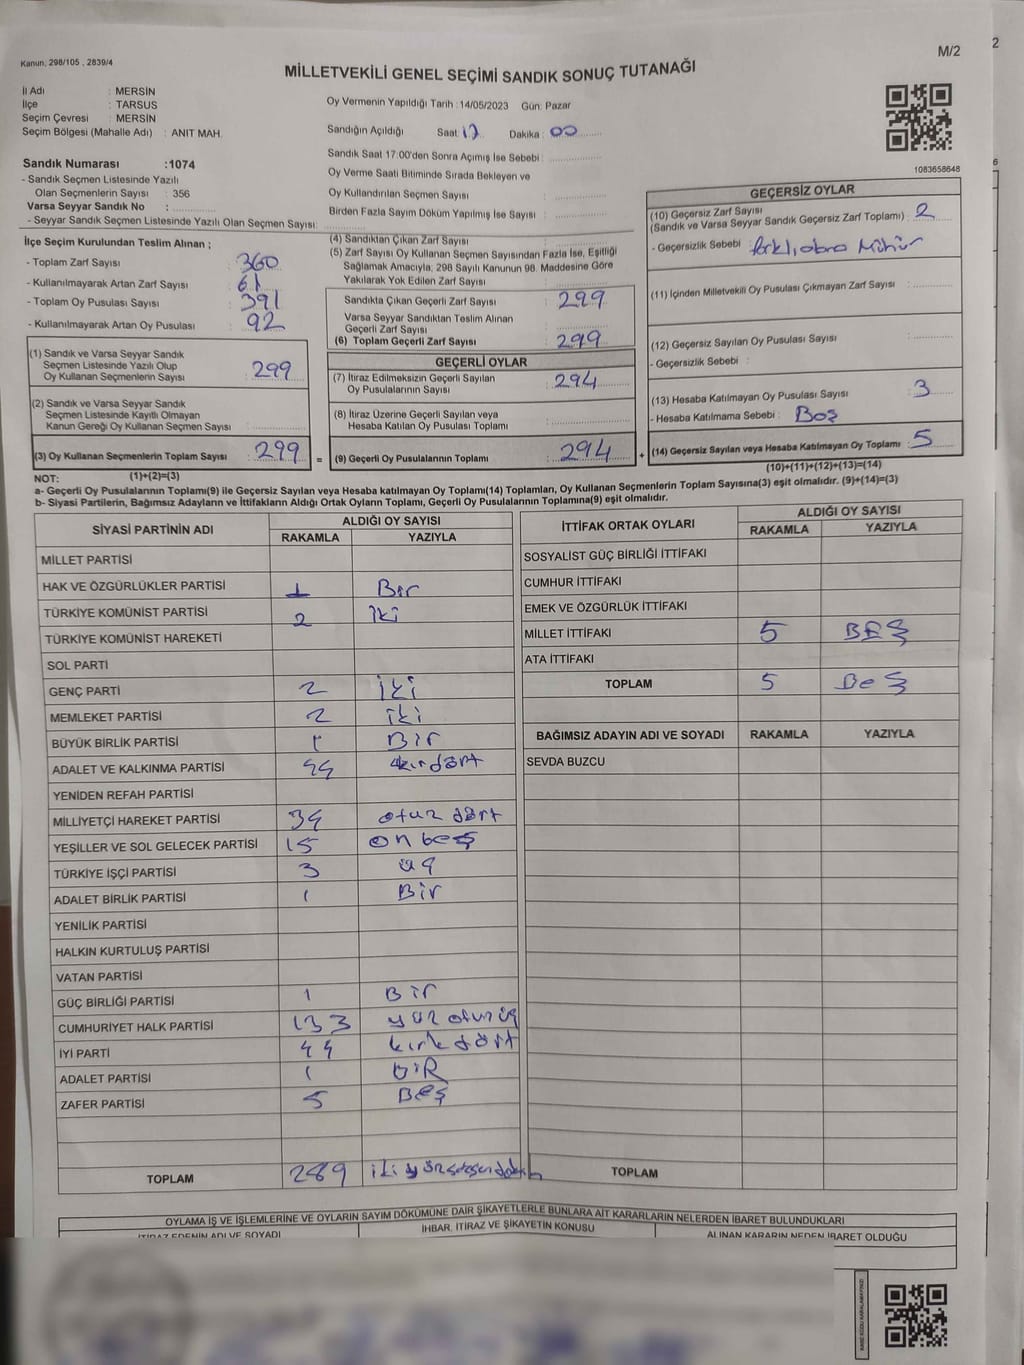 2
M/2
Kanun, 298/105 , 2839/4
MİLLETVEKİLİ GENEL SEÇİMİ SANDIK SONUÇ TUTANAĞI
İl Adı : MERSİN
İlçe : TARSUS
Seçim Çevresi : MERSİN
Seçim Bölgesi (Mahalle Adı) : ANIT MAH.
Sandık Numarası :1074
- Sandık Seçmen Listesinde Yazılı
Olan Seçmenlerin Sayısı : 356
Varsa Seyyar Sandık No :
- Seyyar Sandık Seçmen Listesinde Yazılı Olan Seçmen Sayısı:
Oy Vermenin Yapıldığı Tarih :14/05/2023 Gün: Pazar
Sandığın Açıldığı Saat: 17 Dakika : 00
Sandık Saat 17:00'den Sonra Açımış İse Sebebi :
Oy Verme Saati Bitiminde Sırada Bekleyen ve
Oy Kullandırılan Seçmen Sayısı :
Birden Fazla Sayım Döküm Yapılmış İse Sayısı :
1083658648
6
İlçe Seçim Kurulundan Teslim Alınan ;
- Toplam Zarf Sayısı : 360
- Kullanılmayarak Artan Zarf Sayısı : 61
- Toplam Oy Pusulası Sayısı : 391
- Kullanılmayarak Artan Oy Pusulası : 92
(1) Sandık ve Varsa Seyyar Sandık
Seçmen Listesinde Yazılı Olup
Oy Kullanan Seçmenlerin Sayısı : 299
(2) Sandık ve Varsa Seyyar Sandık
Seçmen Listesinde Kayıtlı Olmayan
Kanun Gereği Oy Kullanan Seçmen Sayısı :
(3) Oy Kullanan Seçmenlerin Toplam Sayısı : 299 =
(4) Sandıktan Çıkan Zarf Sayısı :
(5) Zarf Sayısı Oy Kullanan Seçmen Sayısından Fazla İse, Eşitliği
Sağlamak Amacıyla, 298 Sayılı Kanunun 98. Maddesine Göre
Yakılarak Yok Edilen Zarf Sayısı :
Sandıkta Çıkan Geçerli Zarf Sayısı : 299
Varsa Seyyar Sandıktan Teslim Alınan
Geçerli Zarf Sayısı :
(6) Toplam Geçerli Zarf Sayısı : 299
GEÇERLİ OYLAR
(7) İtiraz Edilmeksizin Geçerli Sayılan
Oy Pusulalarının Sayısı : 294
(8) İtiraz Üzerine Geçerli Sayılan veya
Hesaba Katılan Oy Pusulası Toplamı :
(9) Geçerli Oy Pusulalarının Toplamı : 294 +
GEÇERSİZ OYLAR
(10) Geçersiz Zarf Sayısı
(Sandık ve Varsa Seyyar Sandık Geçersiz Zarf Toplamı) : 2
- Geçersizlik Sebebi :
(11) İçinden Milletvekili Oy Pusulası Çıkmayan Zarf Sayısı :
(12) Geçersiz Sayılan Oy Pusulası Sayısı :
- Geçersizlik Sebebi :
(13) Hesaba Katılmayan Oy Pusulası Sayısı : 3
- Hesaba Katılmama Sebebi : Boş
(14) Geçersiz Sayılan veya Hesaba Katılmayan Oy Toplamı : 5
NOT: (1)+(2)=(3) (10)+(11)+(12)+(13)=(14)
a- Geçerli Oy Pusulalarının Toplamı(9) ile Geçersiz Sayılan veya Hesaba katılmayan Oy Toplamı(14) Toplamları, Oy Kullanan Seçmenlerin Toplam Sayısına(3) eşit olmalıdır. (9)+(14)=(3)
b- Siyasi Partilerin, Bağımsız Adayların ve İttifakların Aldığı Ortak Oyların Toplamı, Geçerli Oy Pusulalarının Toplamına(9) eşit olmalıdır.
SİYASİ PARTİNİN ADI ALDIĞI OY SAYISI
RAKAMLA YAZIYLA
MİLLET PARTİSİ
HAK VE ÖZGÜRLÜKLER PARTİSİ 1 Bir
TÜRKİYE KOMÜNİST PARTİSİ 2 İki
TÜRKİYE KOMÜNİST HAREKETİ
SOL PARTİ
GENÇ PARTİ 2 İki
MEMLEKET PARTİSİ 2 iki
BÜYÜK BİRLİK PARTİSİ 1 Bir
ADALET VE KALKINMA PARTİSİ 44 kırdört
YENİDEN REFAH PARTİSİ
MİLLİYETÇİ HAREKET PARTİSİ 34 otuz dört
YEŞİLLER VE SOL GELECEK PARTİSİ 15 on beş
TÜRKİYE İŞÇİ PARTİSİ 3 üç
ADALET BİRLİK PARTİSİ 1 Bir
YENİLİK PARTİSİ
HALKIN KURTULUŞ PARTİSİ
VATAN PARTİSİ
GÜÇ BİRLİĞİ PARTİSİ 1 Bir
CUMHURİYET HALK PARTİSİ 133 yüz otuz üç
İYİ PARTİ 44 kırk dört
ADALET PARTİSİ 1 BİR
ZAFER PARTİSİ 5 Beş
TOPLAM 289
İTTİFAK ORTAK OYLARI ALDIĞI OY SAYISI
RAKAMLA YAZIYLA
SOSYALİST GÜÇ BİRLİĞİ İTTİFAKI
CUMHUR İTTİFAKI
EMEK VE ÖZGÜRLÜK İTTİFAKI
MİLLET İTTİFAKI 5 BEŞ
ATA İTTİFAKI
TOPLAM 5 BeŞ
BAĞIMSIZ ADAYIN ADI VE SOYADI RAKAMLA YAZIYLA
SEVDA BUZCU
TOPLAM
OYLAMA İŞ VE İŞLEMLERİNE VE OYLARIN SAYIM DÖKÜMÜNE DAİR ŞİKAYETLERLE BUNLARA AİT KARARLARIN NELERDEN İBARET BULUNDUKLARI
İTİRAZ EDENİN ADI VE SOYADI İHBAR, İTİRAZ VE ŞİKAYETİN KONUSU ALINAN KARARIN NEDEN İBARET OLDUĞU